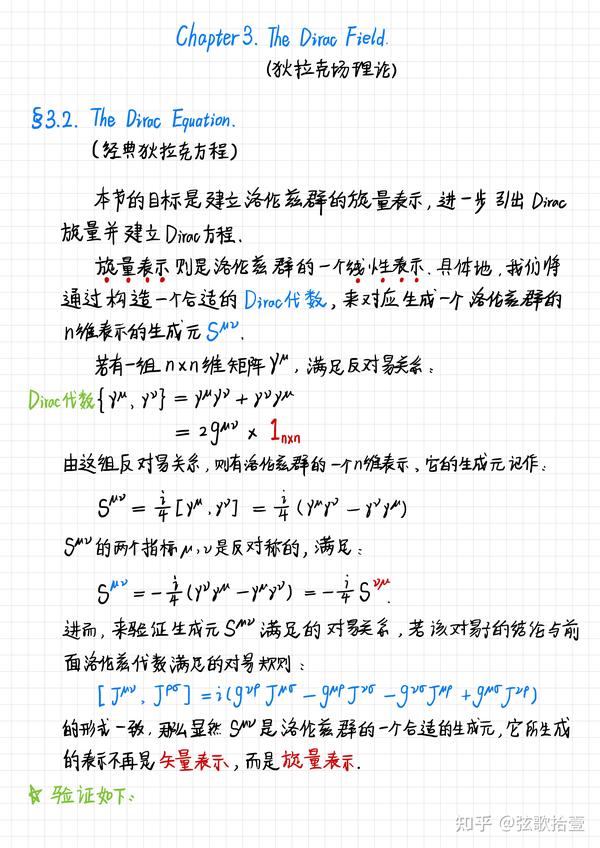 Chapter 3. The Dirac Field.
(狄拉克场理论)
§3.2. The Dirac Equation.
(经典狄拉克方程)
本节的目标是建立洛伦兹群的旋量表示,进一步引出 Dirac
旋量并建立Dirac方程.
旋量表示则是洛伦兹群的一个线性表示.具体地,我们将
通过构造一个合适的Dirac代数,来对应生成一个洛伦兹群的
n维表示的生成元 S^{μν}.
若有一组 n×n维矩阵 γ^μ, 满足反对易关系:
Dirac代数 {γ^μ, γ^ν} = γ^μγ^ν + γ^νγ^μ
= 2g^{μν} × 1_{n×n}
由这组反对易关系,则有洛伦兹群的一个n维表示、它的生成元记作:
S^{μν} = i/4 [γ^μ, γ^ν] = i/4 (γ^μγ^ν − γ^νγ^μ)
S^{μν}的两个指标μ,ν是反对称的,满足:
S^{μν} = −i/4 (γ^νγ^μ − γ^μγ^ν) = −i/4 S^{νμ}.
进而,来验证生成元 S^{μν} 满足的对易关系,若该对易的结论与前
面洛伦兹代数满足的对易规则:
[J^{μν}, J^{ρσ}] = i(g^{νρ}J^{μσ} − g^{μρ}J^{νσ} − g^{νσ}J^{μρ} + g^{μσ}J^{νρ})
的形式一致.那么显然 S^{μν}是洛伦兹群的一个合适的生成元,它所生成
的表示不再是矢量表示,而是旋量表示.
☆ 验证如下:
知乎 @弦歌拾壹